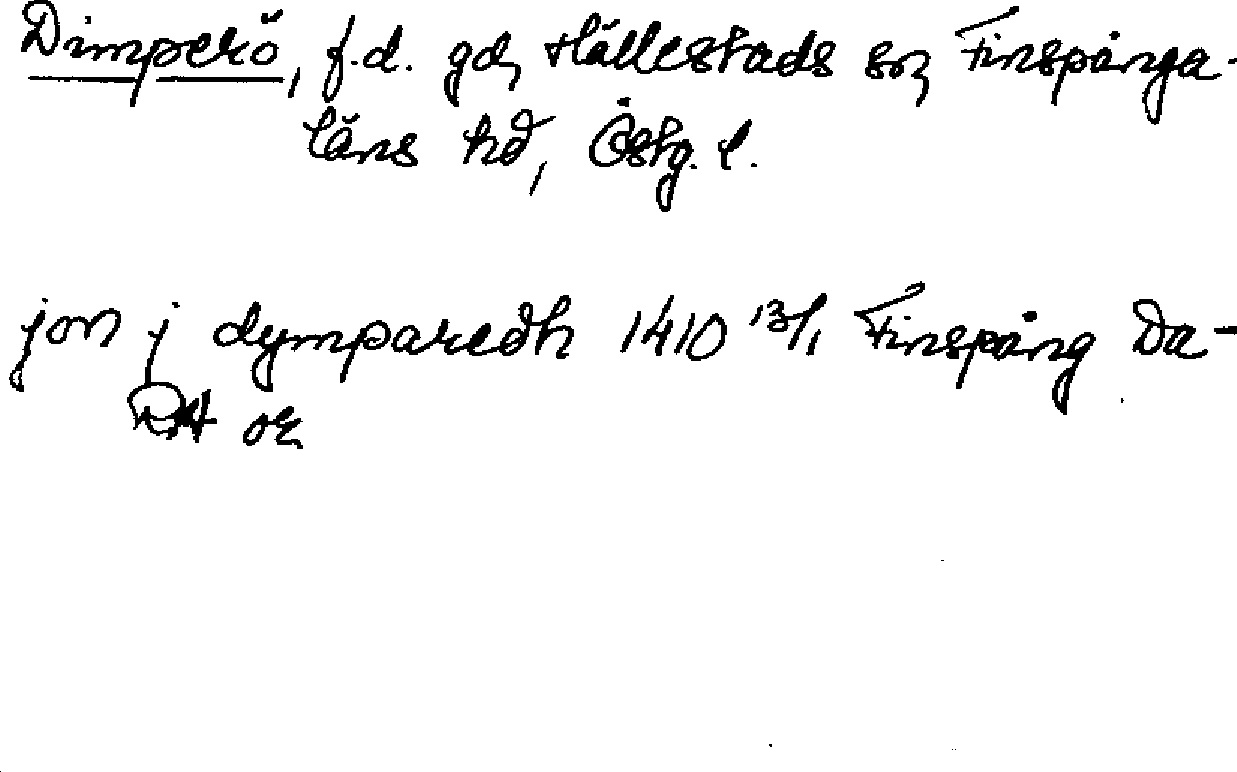 Dimperö, f.d. gd, Hällestads sn, Finspånga-
läns hd, Östg. l.
jon j dymparedh 1410 13/1 Finspång Da-
RA or